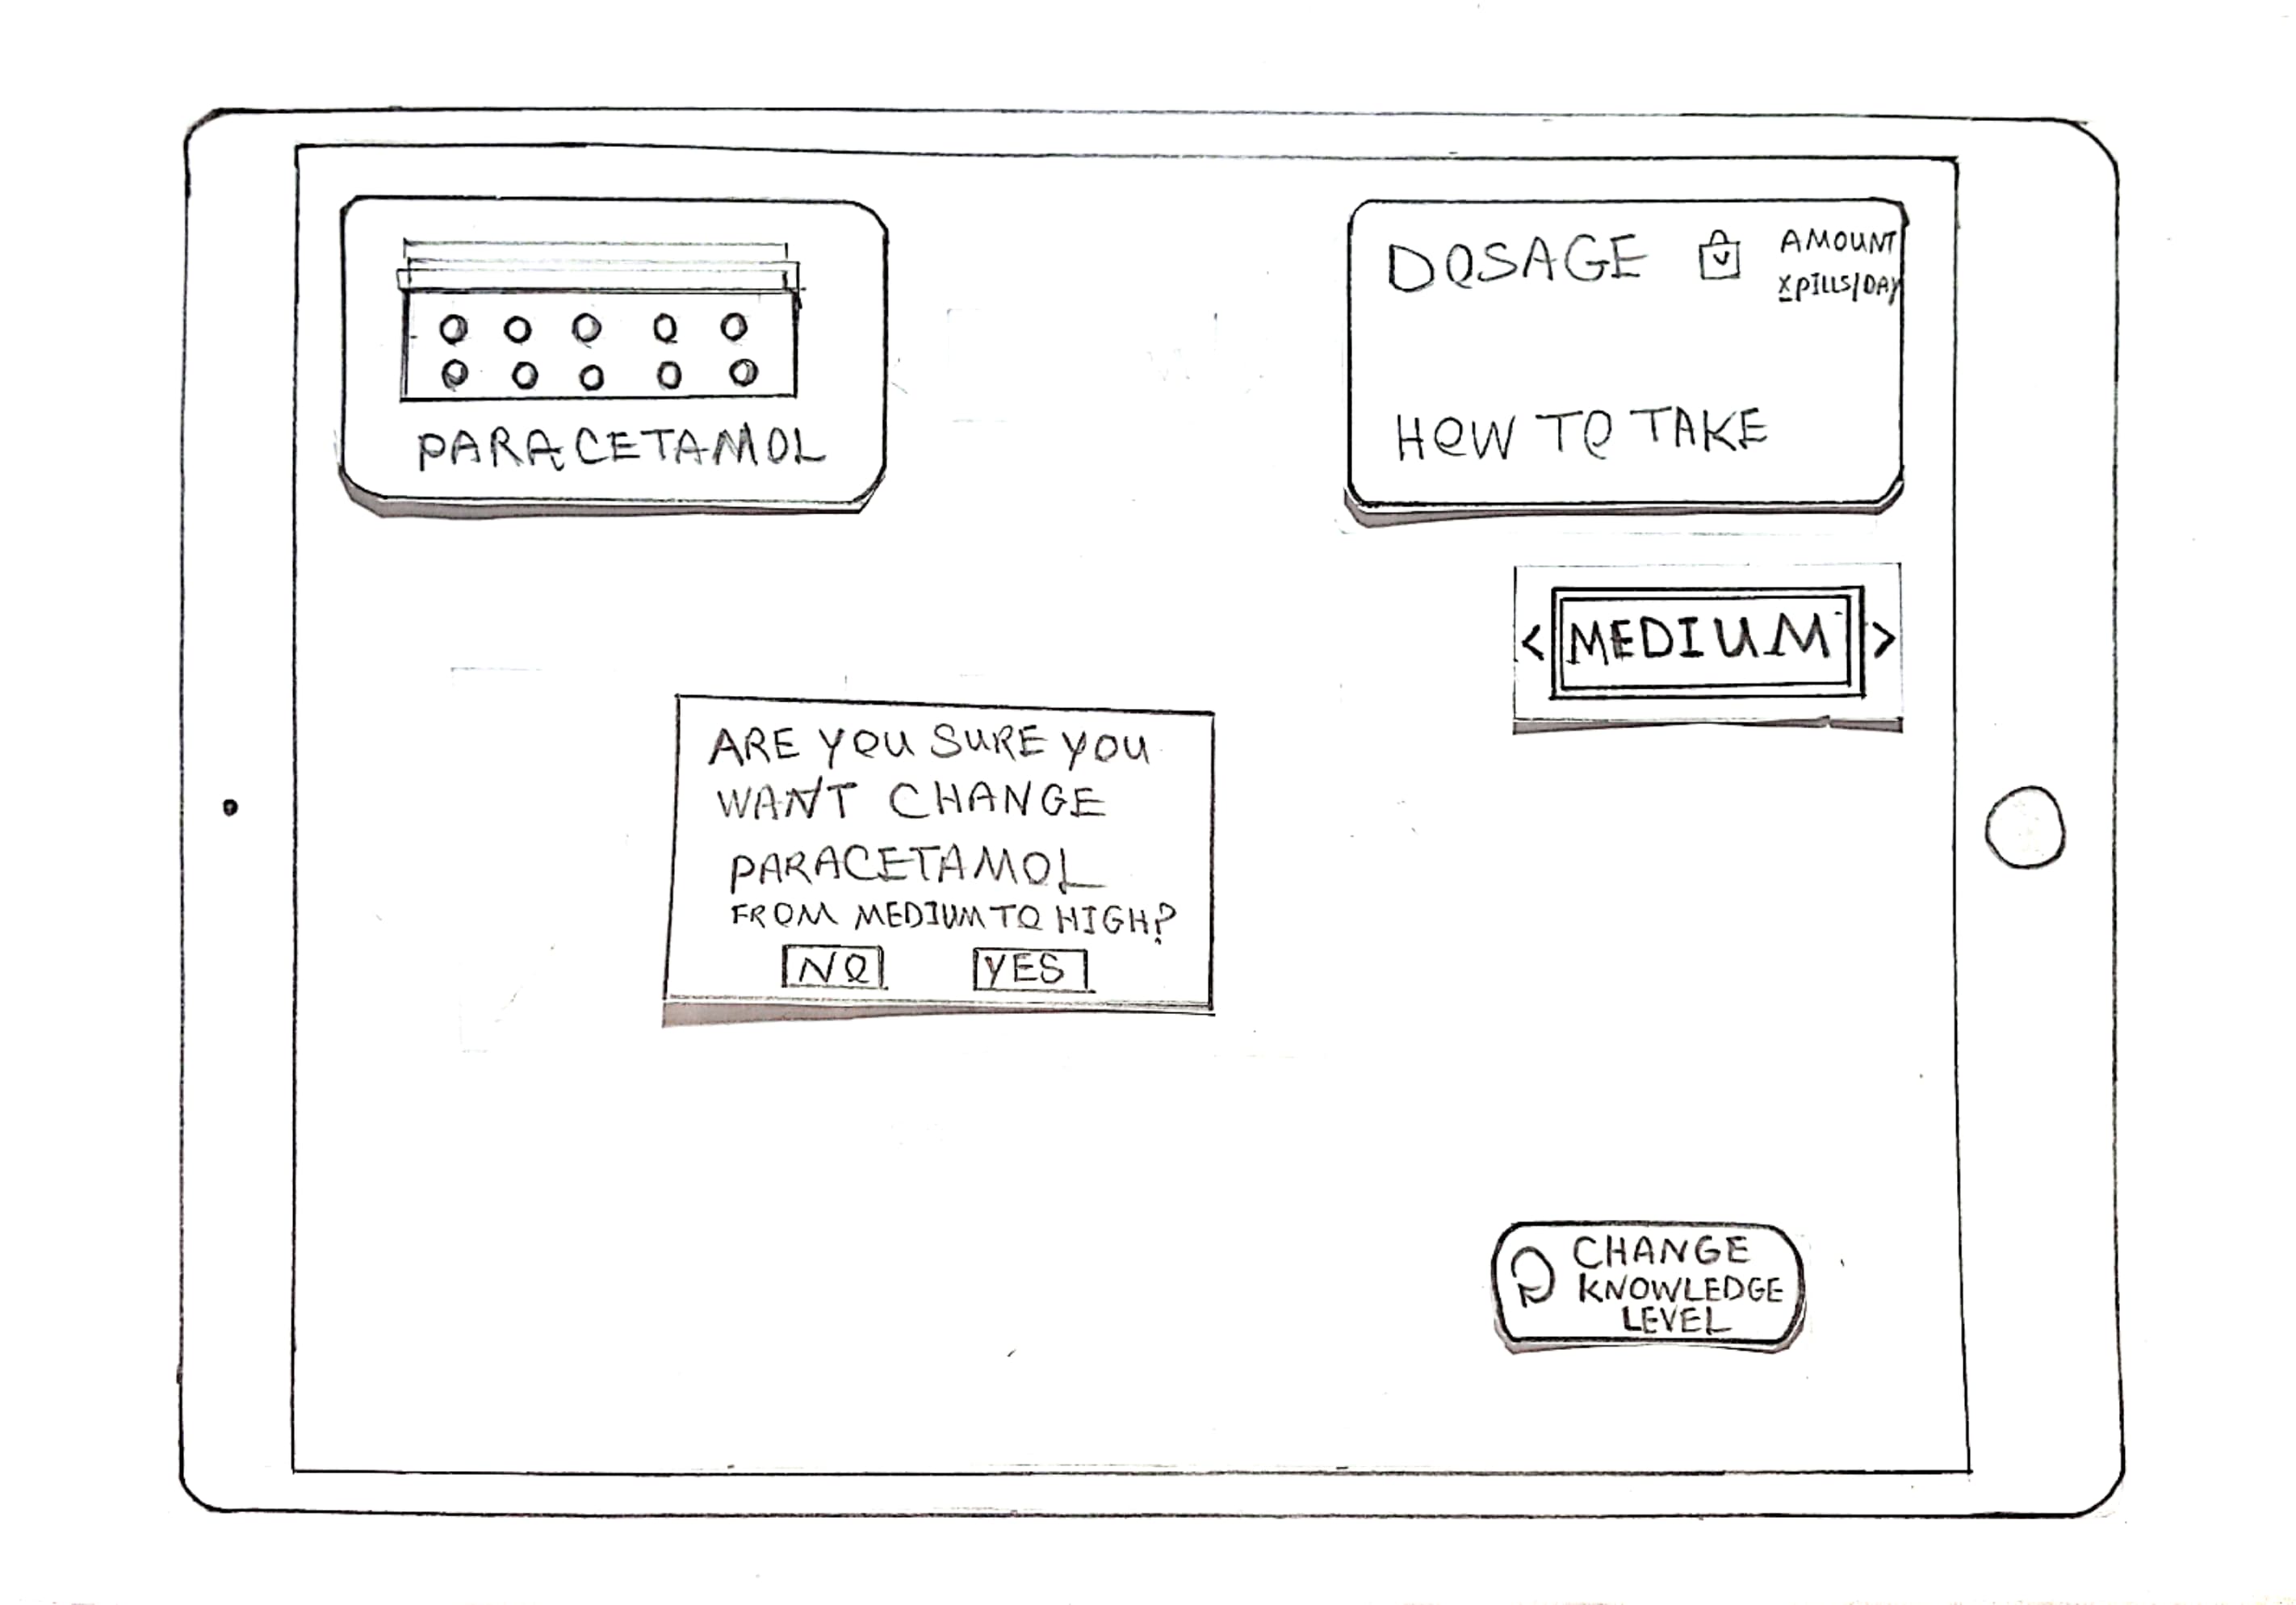 PARACETAMOL
DOSAGE
AMOUNT
xPILLS/DAY
HOW TO TAKE
< MEDIUM >
ARE YOU SURE YOU
WANT CHANGE
PARACETAMOL
FROM MEDIUM TO HIGH?
NO YES
CHANGE
KNOWLEDGE
LEVEL